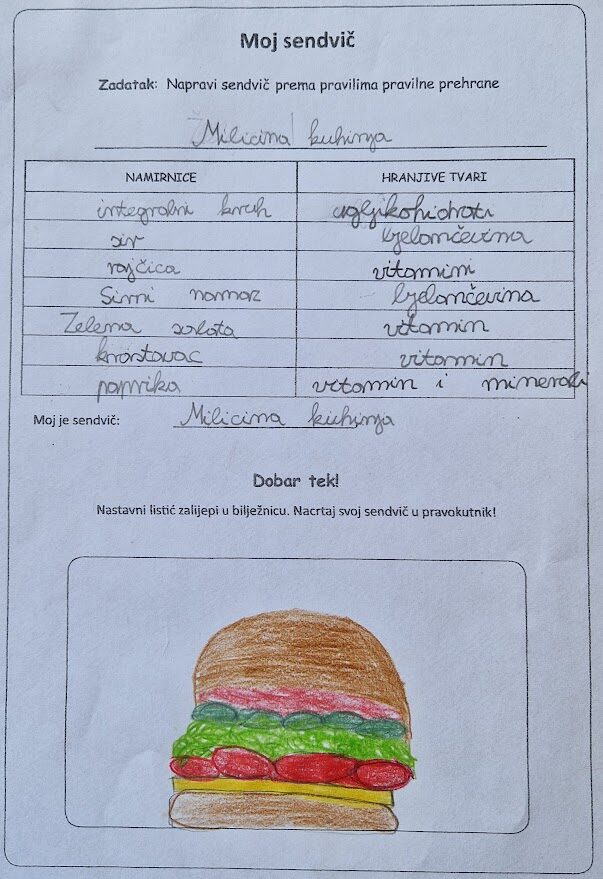 Moj sendvič
Zadatak: Napravi sendvič prema pravilima pravilne prehrane
Milicina kuhinja
NAMIRNICE HRANJIVE TVARI
integralni kruh ugljikohidrati
sir bjelančevina
rajčica vitamini
Sirni namaz bjelančevina
Zelena salata vitamin
krastavac vitamin
paprika vitamin i minerali
Moj je sendvič: Milicina kuhinja
Dobar tek!
Nastavni listić zalijepi u bilježnicu. Nacrtaj svoj sendvič u pravokutnik!